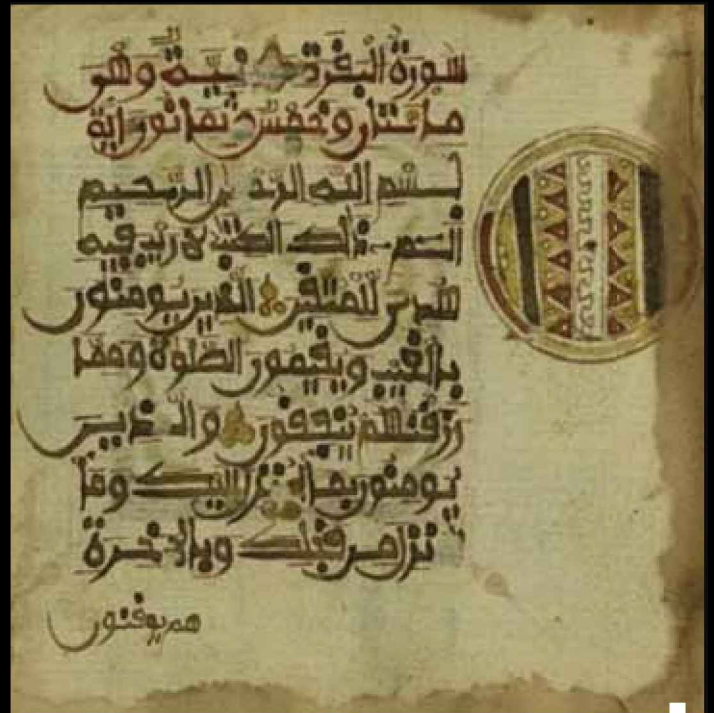 سورة البقرة مدنية وهي
مائتان وخمس وثمانون آية
بسم الله الرحمن الرحيم
الم ذلك الكتب لا ريب فيه
هدى للمتقين الذين يومنون
بالغيب ويقيمون الصلوة ومما
رزقنهم ينفقون والذين
يومنون بما أنزل إليك وما
أنزل من قبلك وبالآخرة
هم يوقنون